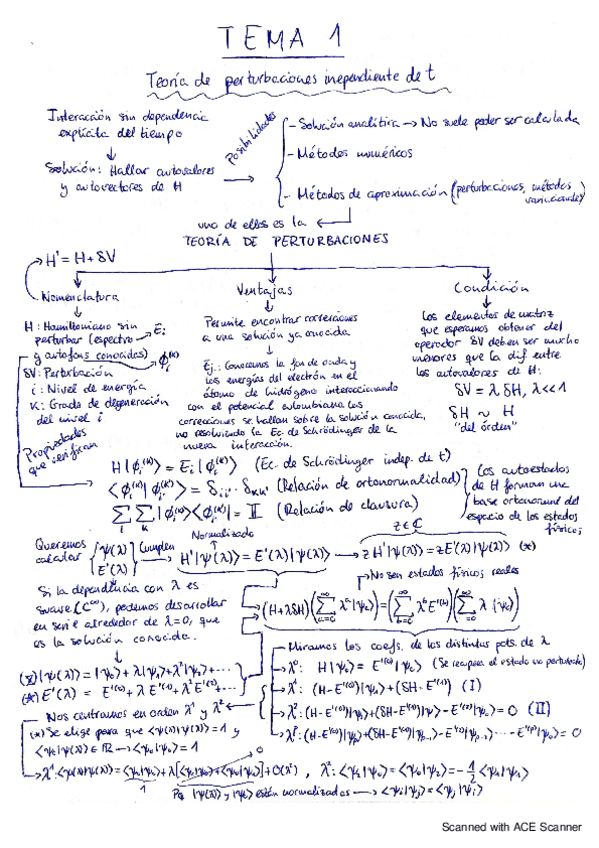 TEMA 1
Teoría de perturbaciones inependiente de t
Interacción sin dependencia
explícita del tiempo
Solución: Hallar autovalores
y autovectores de H
Posibilidades
- Solución analítica → No suele poder ser calculada
- Métodos numéricos
- Métodos de aproximación (perturbaciones, métodos
variacionales)
uno de ellos es la
TEORÍA DE PERTURBACIONES
H' = H + δV
Nomenclatura
H: Hamiltoniano sin
perturbar (espectro → Ei
y autofons conocidas) φi^(k)
δV: Perturbación
i: Nivel de energía
K: Grado de degeneración
del nivel i
Propiedades
que verifican
Ventajas
Permite encontrar correcciones
a una solución ya conocida
Ej.: Conocemos la fon de onda y
las energías del electrón en el
átomo de hidrógeno interaccionando
con el potencial culombiano. Las
correcciones se hallan sobre la solución conocida,
no resolviendo la Ec. de Schrödinger de la
nueva interacción.
Condición
Los elementos de matriz
que esperamos obtener del
operador δV deben ser mucho
menores que la dif entre
los autovalores de H:
δV = λ δH, λ<<1
δH ~ H
"del órden"
H|φi^(k)> = Ei|φi^(k)> (Ec. de Schrödinger indep. de t)
<φi^(k)|φi'^(k')> = δii' · δkk' (Relación de ortonormalidad)
∑i ∑k |φi^(k)><φi^(k)| = 𝕀 (Relación de clausura)
Los autoestados
de H forman una
base ortonormal del
espacio de los estados
físicos
Queremos
calcular { ψ(λ) E'(λ) Cumplen
Normalizado
H'|ψ(λ)> = E'(λ)|ψ(λ)> → zH'|ψ(λ)> = zE'(λ)|ψ(λ)> (*)
z∈ℂ
Si la dependencia con λ es
suave (C^∞), podemos desarrollar
en serie alrededor de λ=0, que
es la solución conocida.
No son estados físicos reales
(H+λδH)(∑ λ^a |ψa>) = (∑ λ^b E'^(b))(∑ λ |ψc>)
(*)|ψ(λ)> = |ψ0> + λ|ψ1> + λ²|ψ2> + ...
(*)E'(λ) = E'^(0) + λE'^(1) + λ²E'^(2) + ...
Nos centramos en orden λ¹ y λ²
Miramos los coefs. de los distintos pots. de λ
λ⁰: H|ψ0> = E'^(0)|ψ0> (Se recupera el estado no perturbado)
λ¹: (H-E'^(0))|ψ1> + (δH-E'^(1)) (I)
λ²: (H-E'^(0))|ψ2> + (δH-E'^(1))|ψ1> - E'^(2)|ψ0> = 0 (II)
λ^p: (H-E'^(0))|ψp> + (δH-E'^(1))|ψp-1> - E'^(2)|ψp-2> ... - E'^(p)|ψ0> = 0
(*) Se elige para que <ψ(λ)|ψ(λ)> = 1 y
<ψ0|ψ(λ)> ∈ ℝ → <ψ0|ψ0> = 1
λ¹: <ψ(λ)|ψ(λ)> = <ψ0|ψ0> + λ[<ψ1|ψ0> + <ψ0|ψ1>] + O(λ²), λ²: <ψ0|ψ2> = <ψ2|ψ0> = -1/2 <ψ1|ψ1>
1
0
Pq |ψ(λ)> y |ψ0> están normalizados → <ψi|ψj> = <ψj|ψi>
Scanned with ACE Scanner